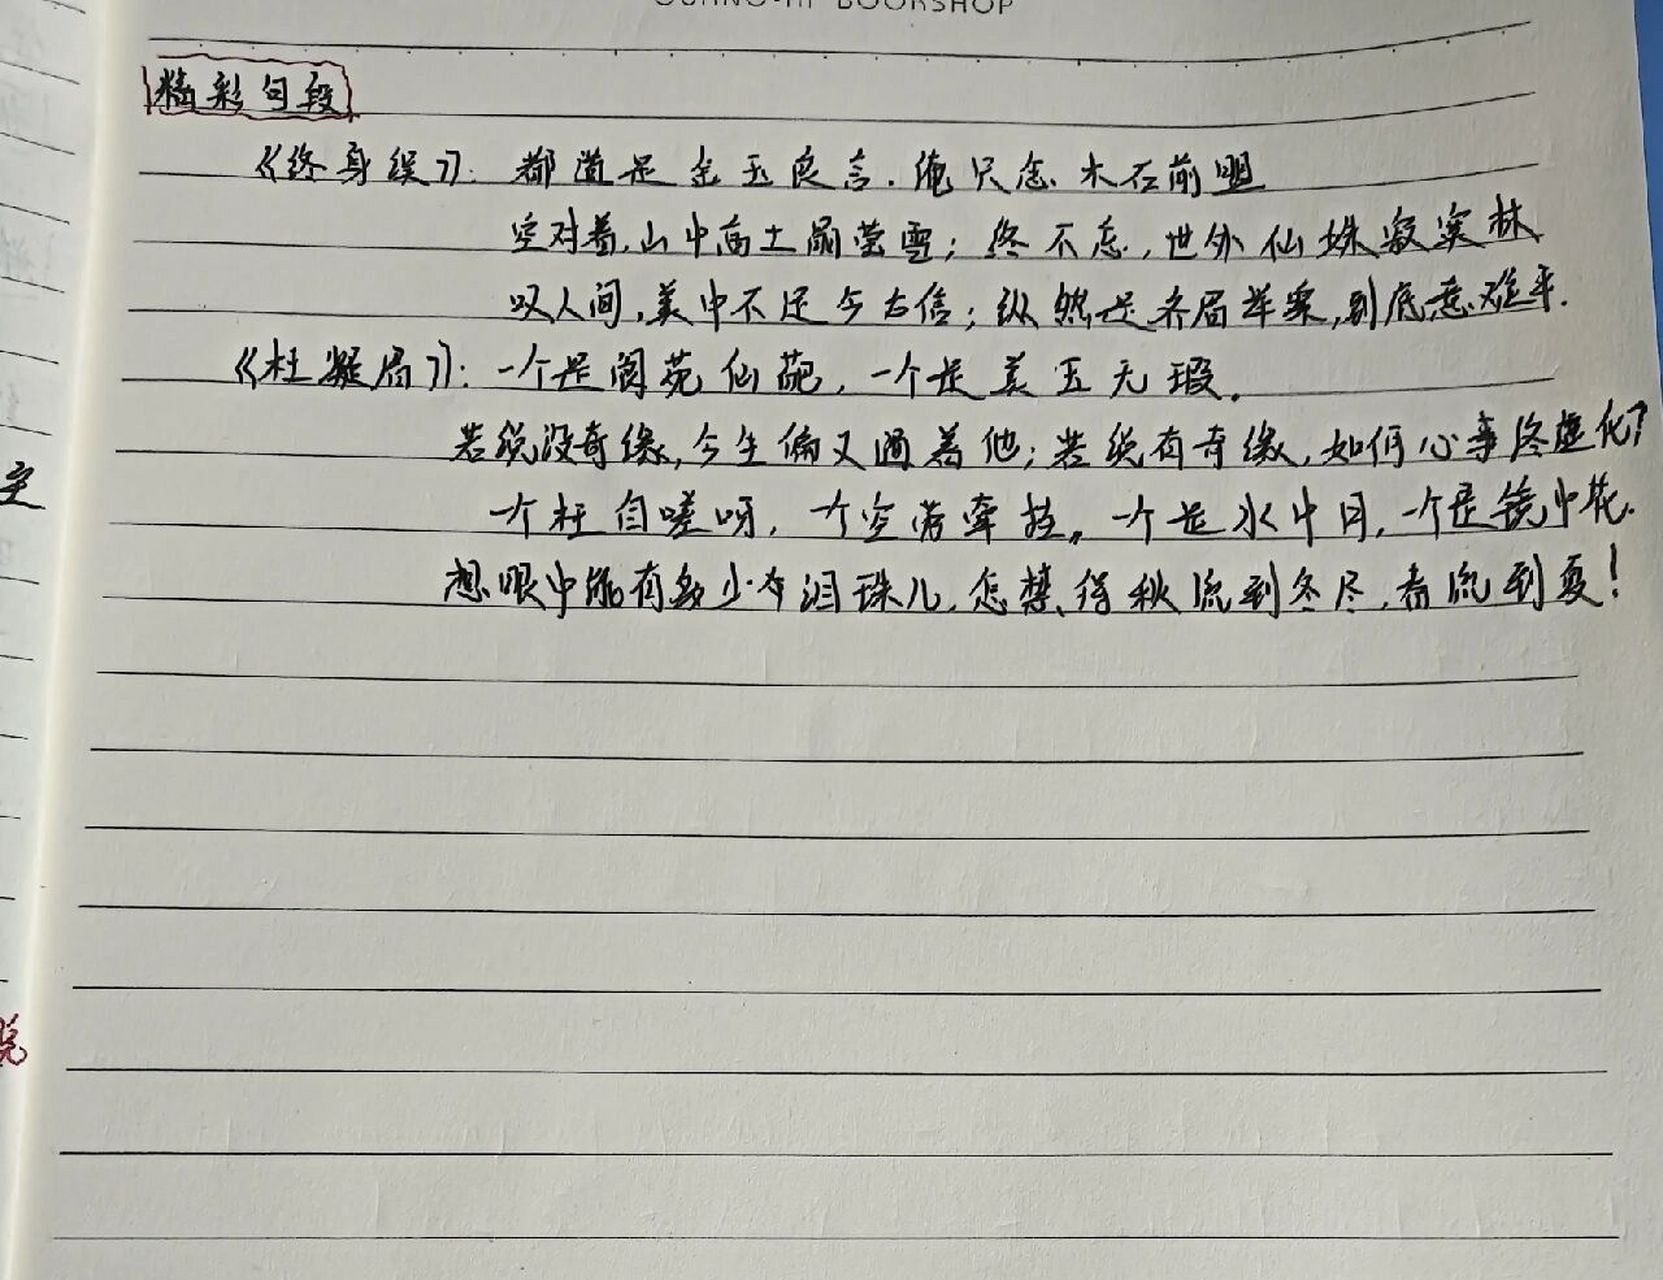 BOOKSHOP
精彩句段
《终身误》：都道是金玉良言.俺只念木石前盟
空对着,山中高士晶莹雪；终不忘,世外仙姝寂寞林
叹人间,美中不足今方信；纵然是齐眉举案,到底意难平.
《枉凝眉》：一个是阆苑仙葩，一个是美玉无瑕。
若说没奇缘,今生偏又遇着他；若说有奇缘,如何心事终虚化？
一个枉自嗟呀，一个空劳牵挂。一个是水中月,一个是镜中花.
想眼中能有多少个泪珠儿,怎禁得秋流到冬尽,春流到夏！